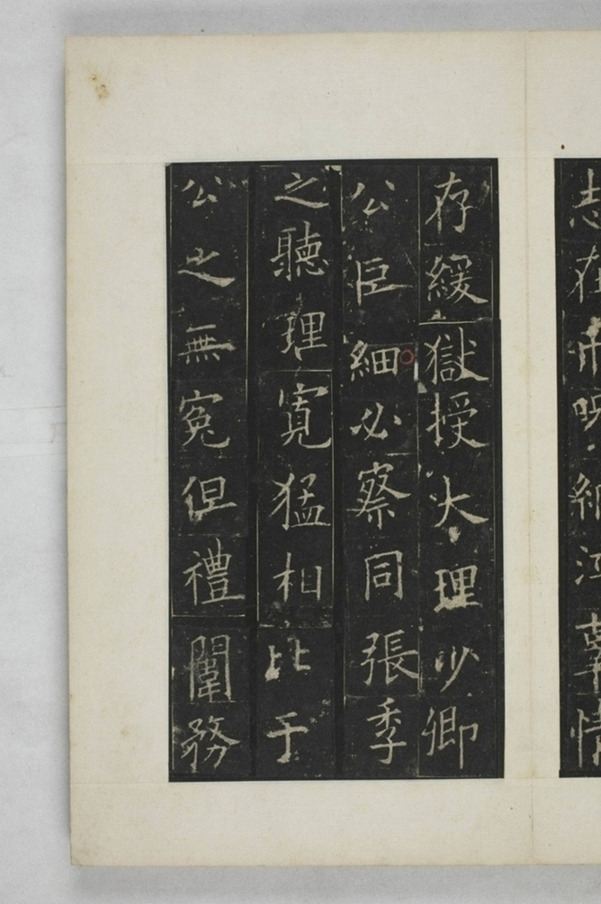 志在呪網泣辜情
存緩獄授大理少卿
公巨細必察同張季
之聽理寬猛相比于
公之無冤但禮闈務